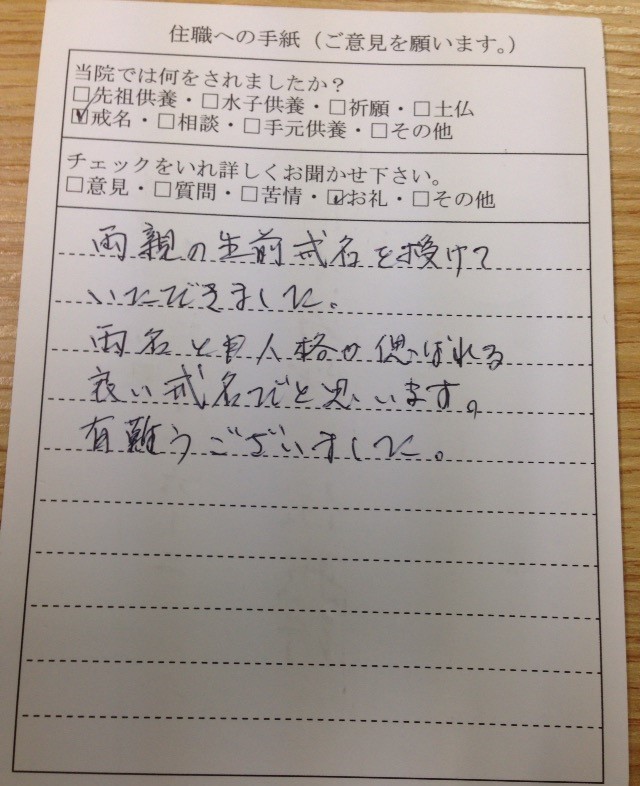 住職への手紙（ご意見を願います。）
当院では何をされましたか？
□先祖供養・□水子供養・□祈願・□土仏
☑戒名・□相談・□手元供養・□その他
チェックをいれ詳しくお聞かせ下さい。
□意見・□質問・□苦情・☑お礼・□その他
両親の生前戒名を授けて
いただきました。
両名とも人格が偲ばれる
良い戒名だと思います。
有難うございました。